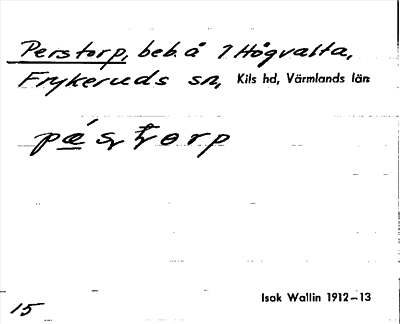 Perstorp, beb. å 1 Högvalta,
Frykeruds sn, Kils hd, Värmlands län
Isak Wallin 1912–13
15